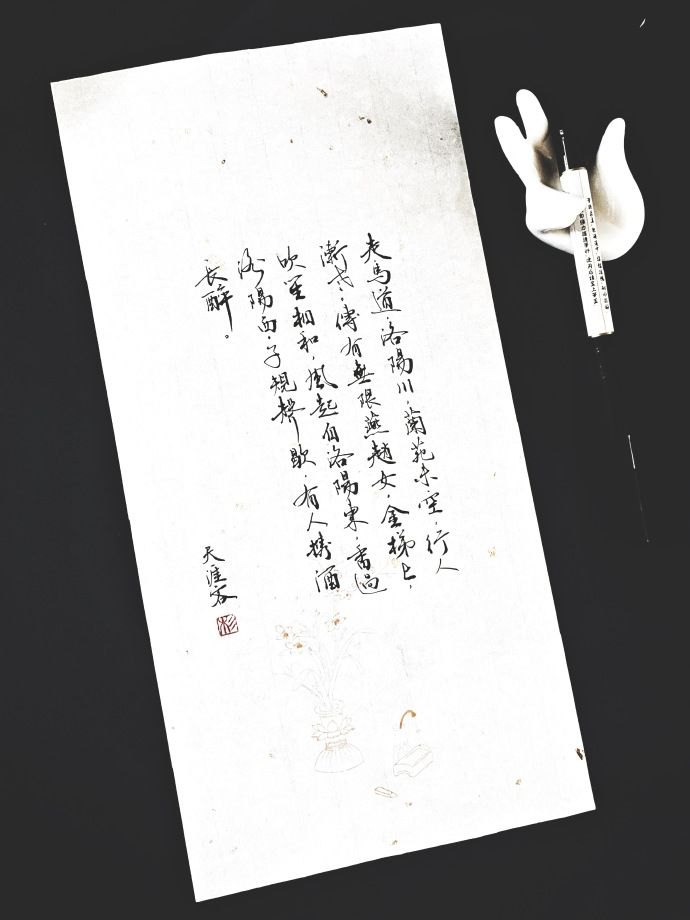 走馬道，洛陽川，蘭苑未空，行人
漸老，傳有無限燕趙女，金梯上，
吹笙相和，風起自洛陽東，香過
洛陽西，子規聲歇，有人携酒
長醉。
天涯客